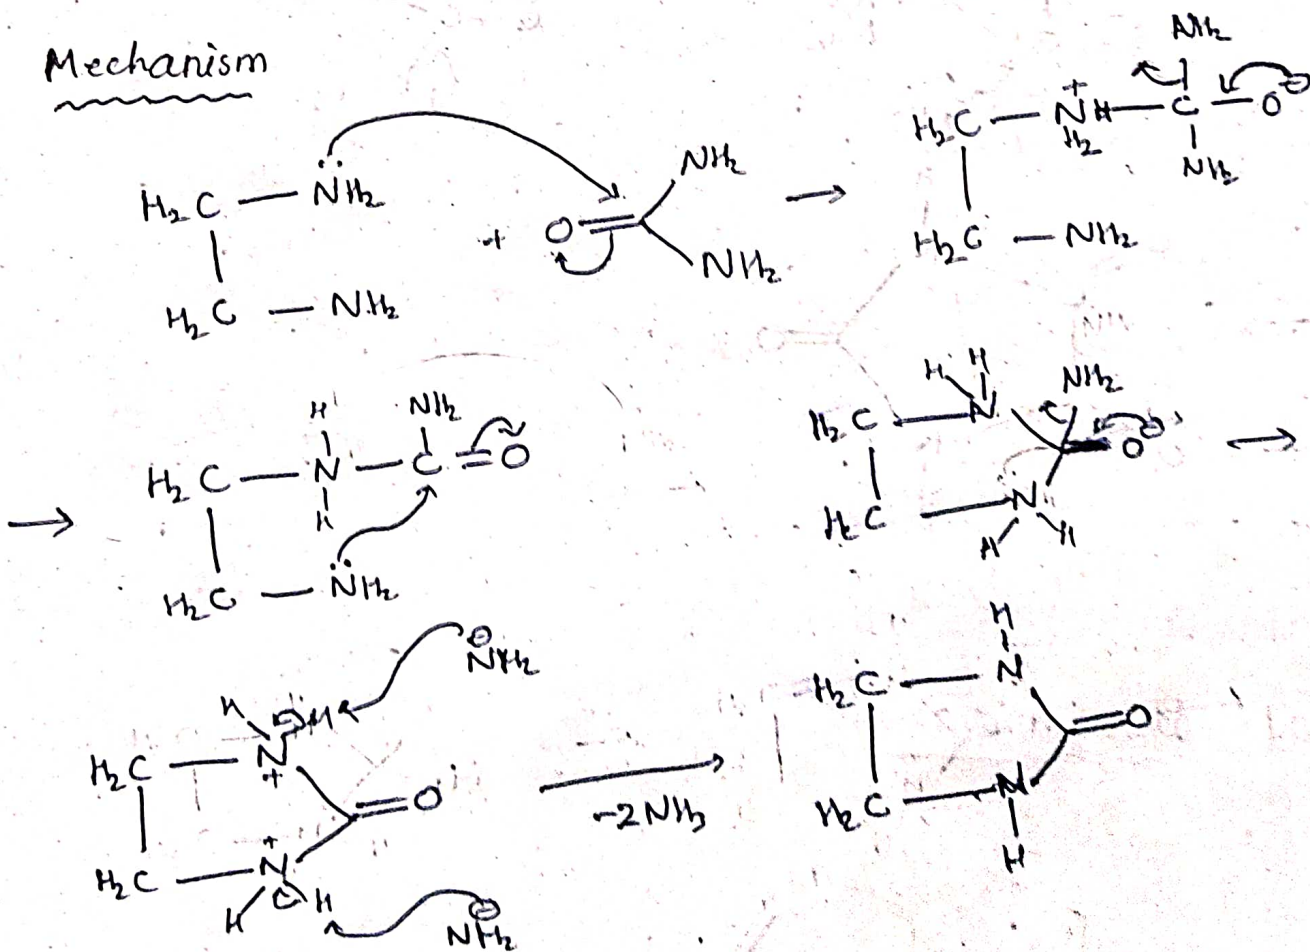 Mechanism
H₂C — N̈H₂
H₂C — NH₂
+
O = NH₂
NH₂
→
H₂C — N⁺H₂ — C — O⊖
NH₂
NH₂
H₂C — NH₂
→
H₂C — N — C = O
H
H
NH₂
H₂C — N̈H₂
H₂C — N
H H
NH₂
O ⊖
H₂C — N
H H
→
H₂C — N
H H
+
⊖
NH₂
= O
H₂C — N
+
H H
⊖
NH₂
→
-2NH₃
H₂C — N
H
= O
H₂C — N
H